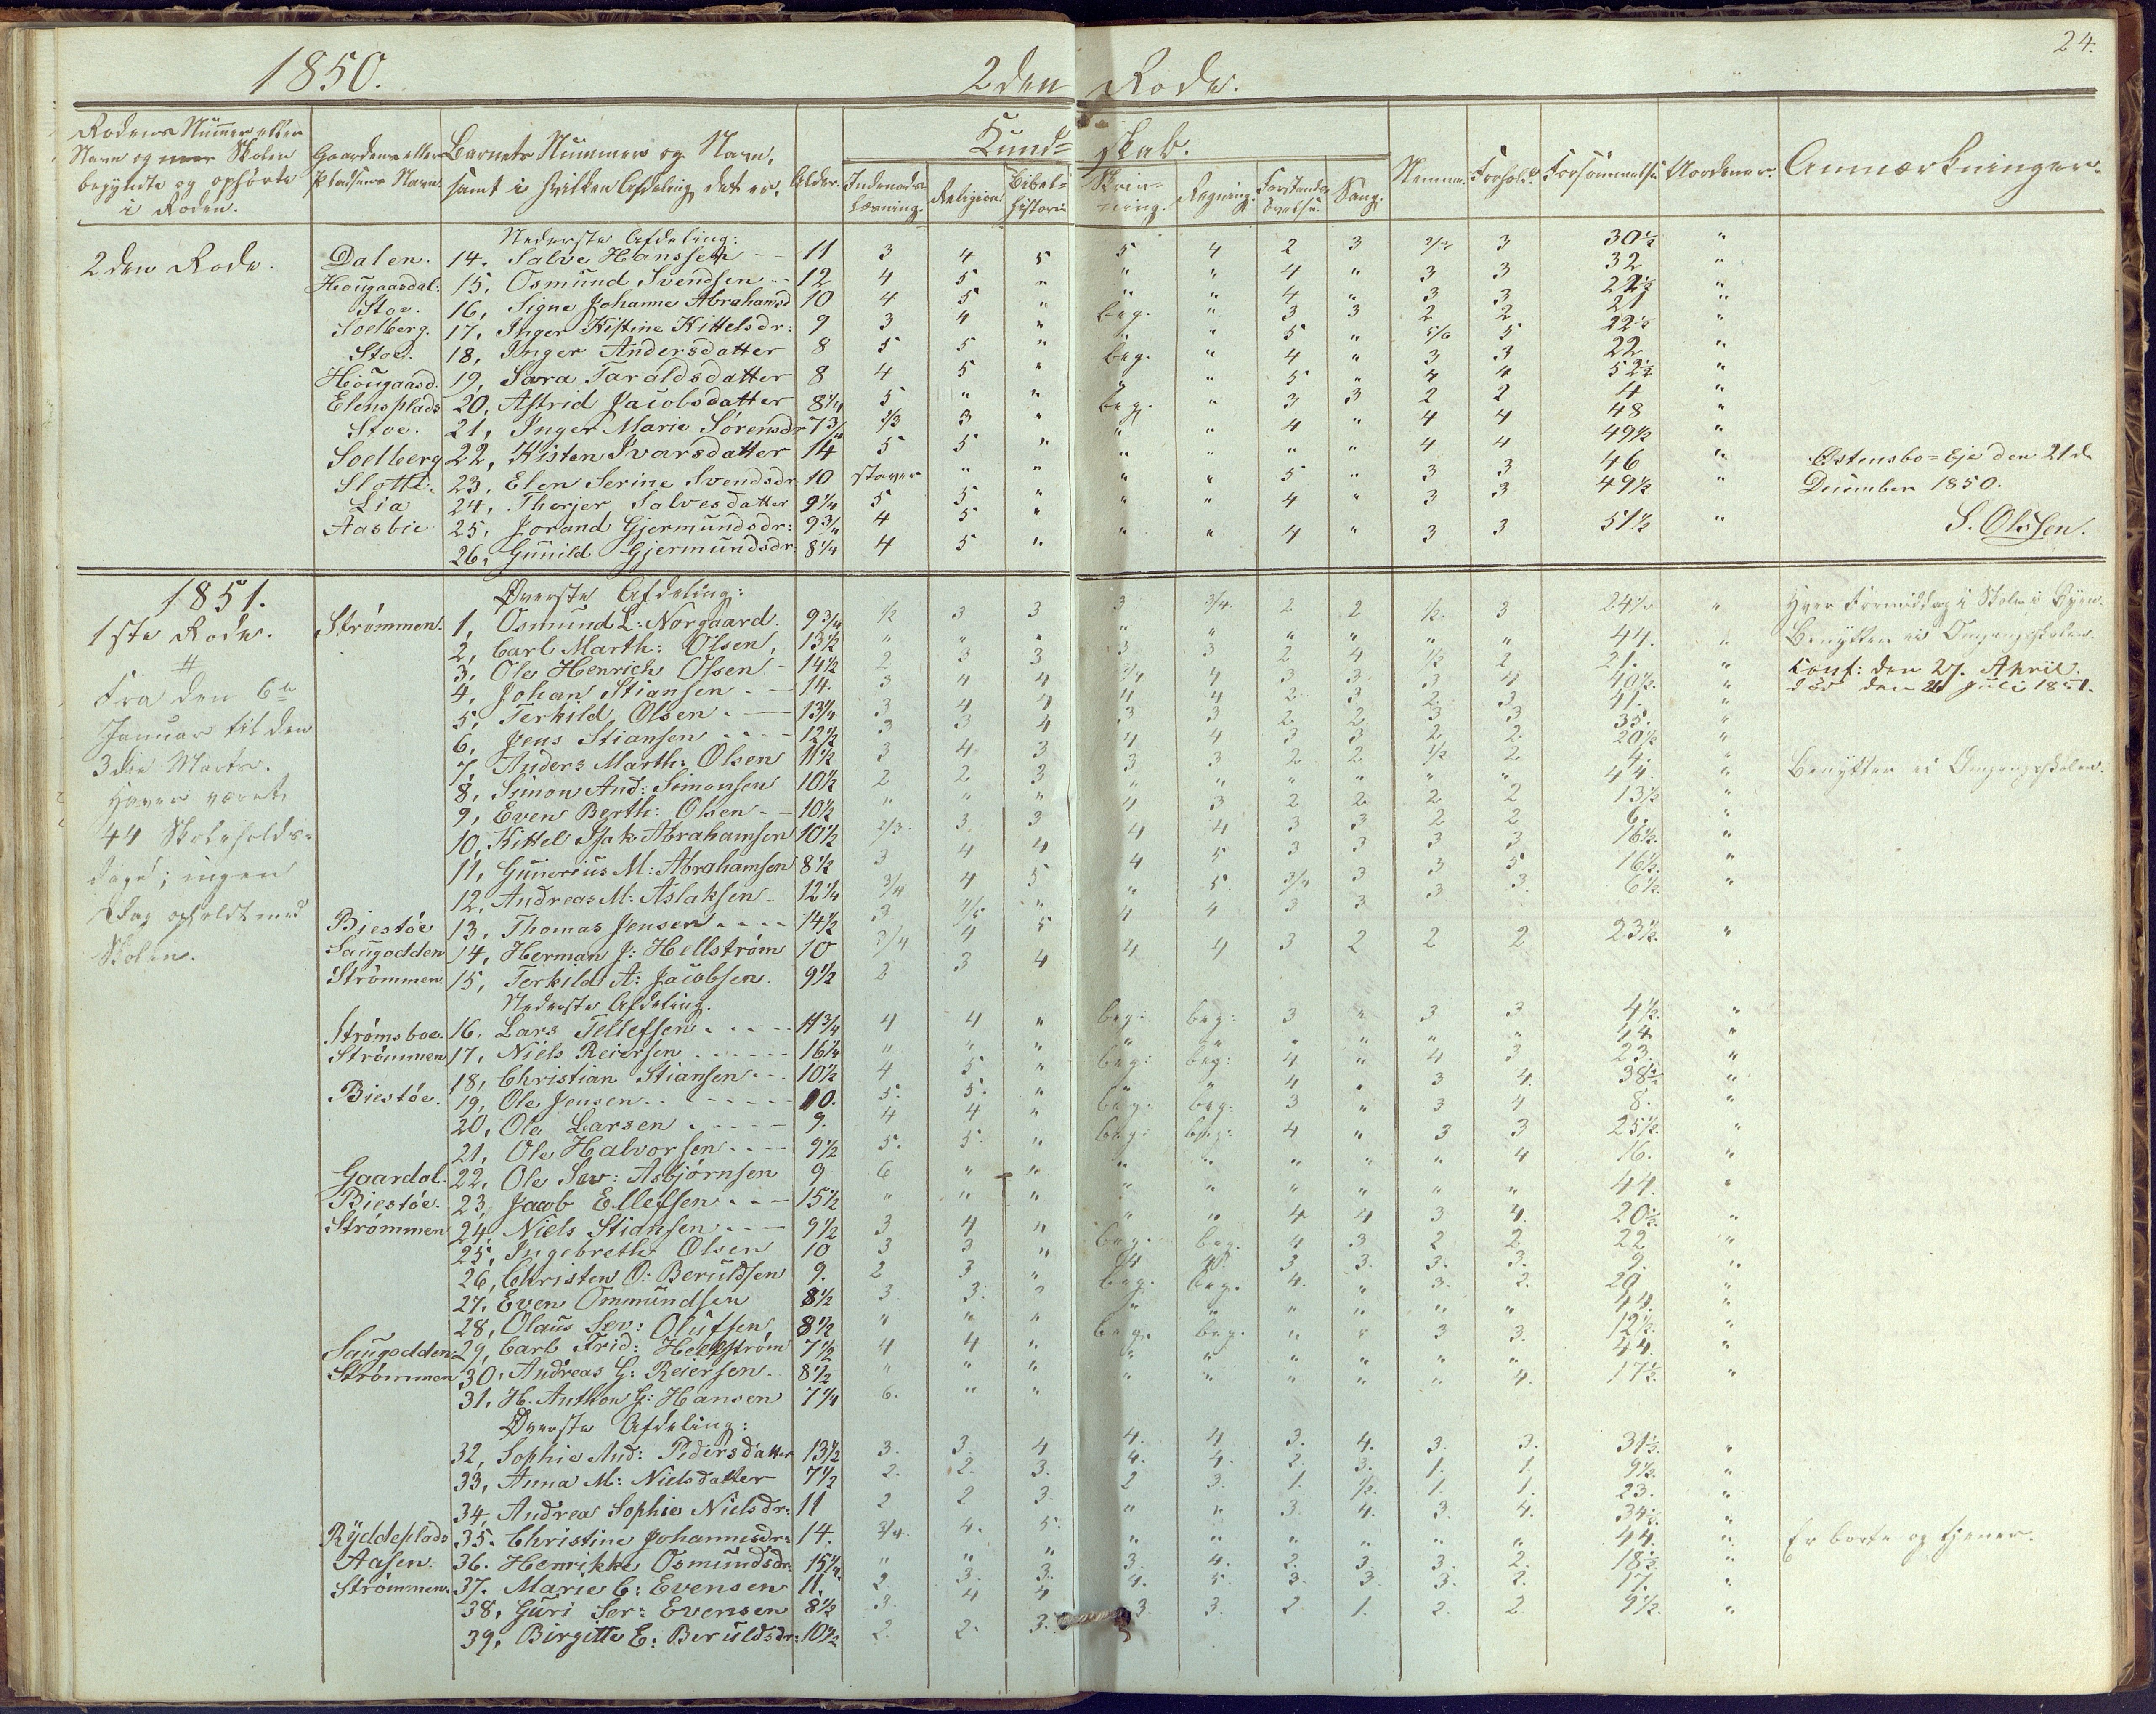 24.
1850. 2den Rode.
Rodens Nummer eller Navn og naar Skolen begyndte og ophørte i Roden.
Gaardens eller Pladsens Navn.
Barnets Nummer og Navn, samt i hvilken Afdeling det er.
Alder.
Kund= skab.
Indenads Læsning. Religion. Bibel= historie Skriv= ning. Regning. Forstands øvelse. Sang.
Nemme. Forhold. Forsømmelse. Uordener. Anmærkninger.
Nederste Afdeling:
2den Rode. Dalen. 14. Salve Hanssen 11 3 4 5 5 4 2 3 2/3 3 30½ "
Hougaardal. 15, Osmund Svendsen 12 4 5 " " " 4 " 3 3 32 "
Stoe. 16, Signe Johanne Abrahamsd 10 4 5 " " " 4 " 3 3 22½ "
Soelberg. 17, Inger Kistine Kittelsdr: 9 3 4 " beg. " 3 3 2 2 21 "
Stoe. 18, Inger Andersdatter 8 5 5 " " " 5 " 5/6 5 22½ "
Hougaasd. 19, Sara Taraldsdatter 8 4 5 " beg. " 4 " 3 3 22 "
Elensplads 20, Astrid Jacobsdatter 8¼ 5 " " " " 5 " 4 4 52½ "
Stoe. 21, Inger Marie Sørensdr 7¾ 2/3 3 " beg. " 3 3 2 2 4 "
Soelberg 22, Kisten Ivarsdatter 14 5 5 " " " 4 " 4 4 48 "
Slotte. 23, Elen Serine Svendsdr 10 staver " " " " " " 4 4 49½ "
Lia 24, Therjer Salvesdatter 9¼ 5 5 " " " 5 " 3 3 46 "
Aasbie 25, Jorand Gjermundsdr: 9¾ 4 5 " " " 4 " 3 3 49½ "
26, Gunild Gjermundsdr 8¼ 4 5 " " " 4 " 3 3 51½ "
Østensbo=Eje den 21de
December 1850.
S. Olssen.
1851.
1ste Rode.
Fra den 6te
Januar til den
3die Marts.
Haver været
44 Skoleholds=
dage; ingen
Dag opholdt med
Skolen.
Øverste Afdeling:
Strømmen. 1, Osmund L: Norgaard. 9¾ ½ 3 3 3 3/4. 2 2 ½. 3 24½ " Hver Formiddag i Skole i Byen.
2, Carl Marth: Olsen, 13½ " " " " " " " " " 44. " Benytter ei Omgangsskolen.
3, Ole Henrich Olsen 14½ 2 3 3 3 3 2 4 ½ 2 21. " Conf: den 27. April.
4, Johan Stiansen. 14. 3 4 4 3/4 4 3 3 3 4 40½. " død den 21 Juli 1851.
5, Terkild Olsen. 13¼ 3 4 4 4 4 2 3 2 3 41. "
6, Jens Stiansen 12½ 3 3 4 3 3 2 2 3 3 35. "
7, Anders Marth: Olsen 11½ 3 4 3 4 4 3 3 2 2 20½ "
8, Simon And: Simonsen 10½ 2 2 3 3 3 2 2 ½ 2 4. "
9, Even Berth: Olsen 10½ " " " " " " " " " 44. " Benytter ei Omgangsskolen.
10, Kittel Isak Abrahamsen 10½ 2/3. 3. 3 4 3 2 2 2 2 13½ "
11, Gunerius M: Abrahamsen 8½ 3 4 4 4 4 3 3 2 2 6. "
12, Andreas M: Aslaksen 12¼ 3/4 4 5 4 5 3 3 3 3 16½. "
Biestøe 13, Thomas Jensen 14½ 3 4/5 " " 5. 3/4 3 3 5 16½. "
Saugodden 14, Herman J: Hellstrøm 10 3/4 4 5 4 4 3 3 3 3. 6½. "
Strømmen. 15, Terkild A: Jacobsen. 9½ 2 3 4 4 4 3 2 2 2 23½. "
Nederste Afdeling.
Strømsboe. 16, Lars Tellefsen 11¾ 4 4 " beg: beg: 3 " 3 3 4½. "
Strømmen 17, Niels Reiersen 16¼ " " " " " " " " " 14. "
18, Christian Stiansen 10½ 4 5 " beg: beg: 4 " 4 3 23. "
Biestøe. 19, Ole Jensen 10. 5. 5. " " " 4 " 3 4. 38½ "
20, Ole Larsen 9. 4 4 " beg: beg: 3 " 3 4 8. "
21, Ole Halvorsen 9½ 5. 5. " beg: beg: 4 " 3 3 25½. "
Gaardal. 22, Ole Sev: Asbjørnsen 9 6 " " " " " " " 4 16. "
Biestøe. 23, Jacob Ellefsen 15½ " " " " " " " " " 44. "
Strømmen 24, Niels Stiansen 9½ 3 4 " " " 4 4 3 4. 20½. "
25, Ingebreth Olsen 10 3 3 " beg. beg. 4 3 2 2 22 "
26, Christen O: Beruldsen 9. 2 3 " 4 4. 3 3. 3. 3. 9. "
27, Even Ommundsen 8½ 3. 3. " beg. beg. 4. " 3. 2. 20. "
28, Olaus Sev: Olufsen 8½ " " " " " " " " " 44. "
Saugodden 29, Carl Frid: Hellstrøm 7½ 4 4 " beg. beg. " " 3 3. 12½. "
Strømmen 30, Andreas G: Reiersen. 8½ " " " " " " " " " 44. "
31, H. Anthon G: Hansen 7¼ 6. " " " " " " " 4. 17½. "
Øverste Afdeling:
32, Sophie And: Pedersdatter 13½ 3. 3. 4 4. 4 3. 4. 3. 3. 31½. "
33, Anna M: Nielsdatter 7½ 2. 2. 3. 4. 4. 2. 3. 1. 1. 9½. "
34, Andrea Sophie Nielsdr: 11 2 2 3. 2 3. 1. ½. 1. 1. 23. "
Ryddeplads 35. Christine Johannesdr: 14. 3/4. 4. 5. " " 3. 4. 3. 4. 34½. "
Aasen. 36. Henrikke Osmundsdr 15¼. " " " " " " " " " 44. " Er borte og tjener.
Strømmen 37. Marie C: Evensen 11. 2. 3. 3. 3. 4. 2. 3. 3. 2. 18½. "
38, Guri Ser: Evensen 8½ 3. 4 4 4. 5. 3. 3. 3. 2. 17. "
39, Birgitte E: Beruldsdr: 10½ 2. 2. 3. 3. 3. 2 1. 2. 2. 9½. "